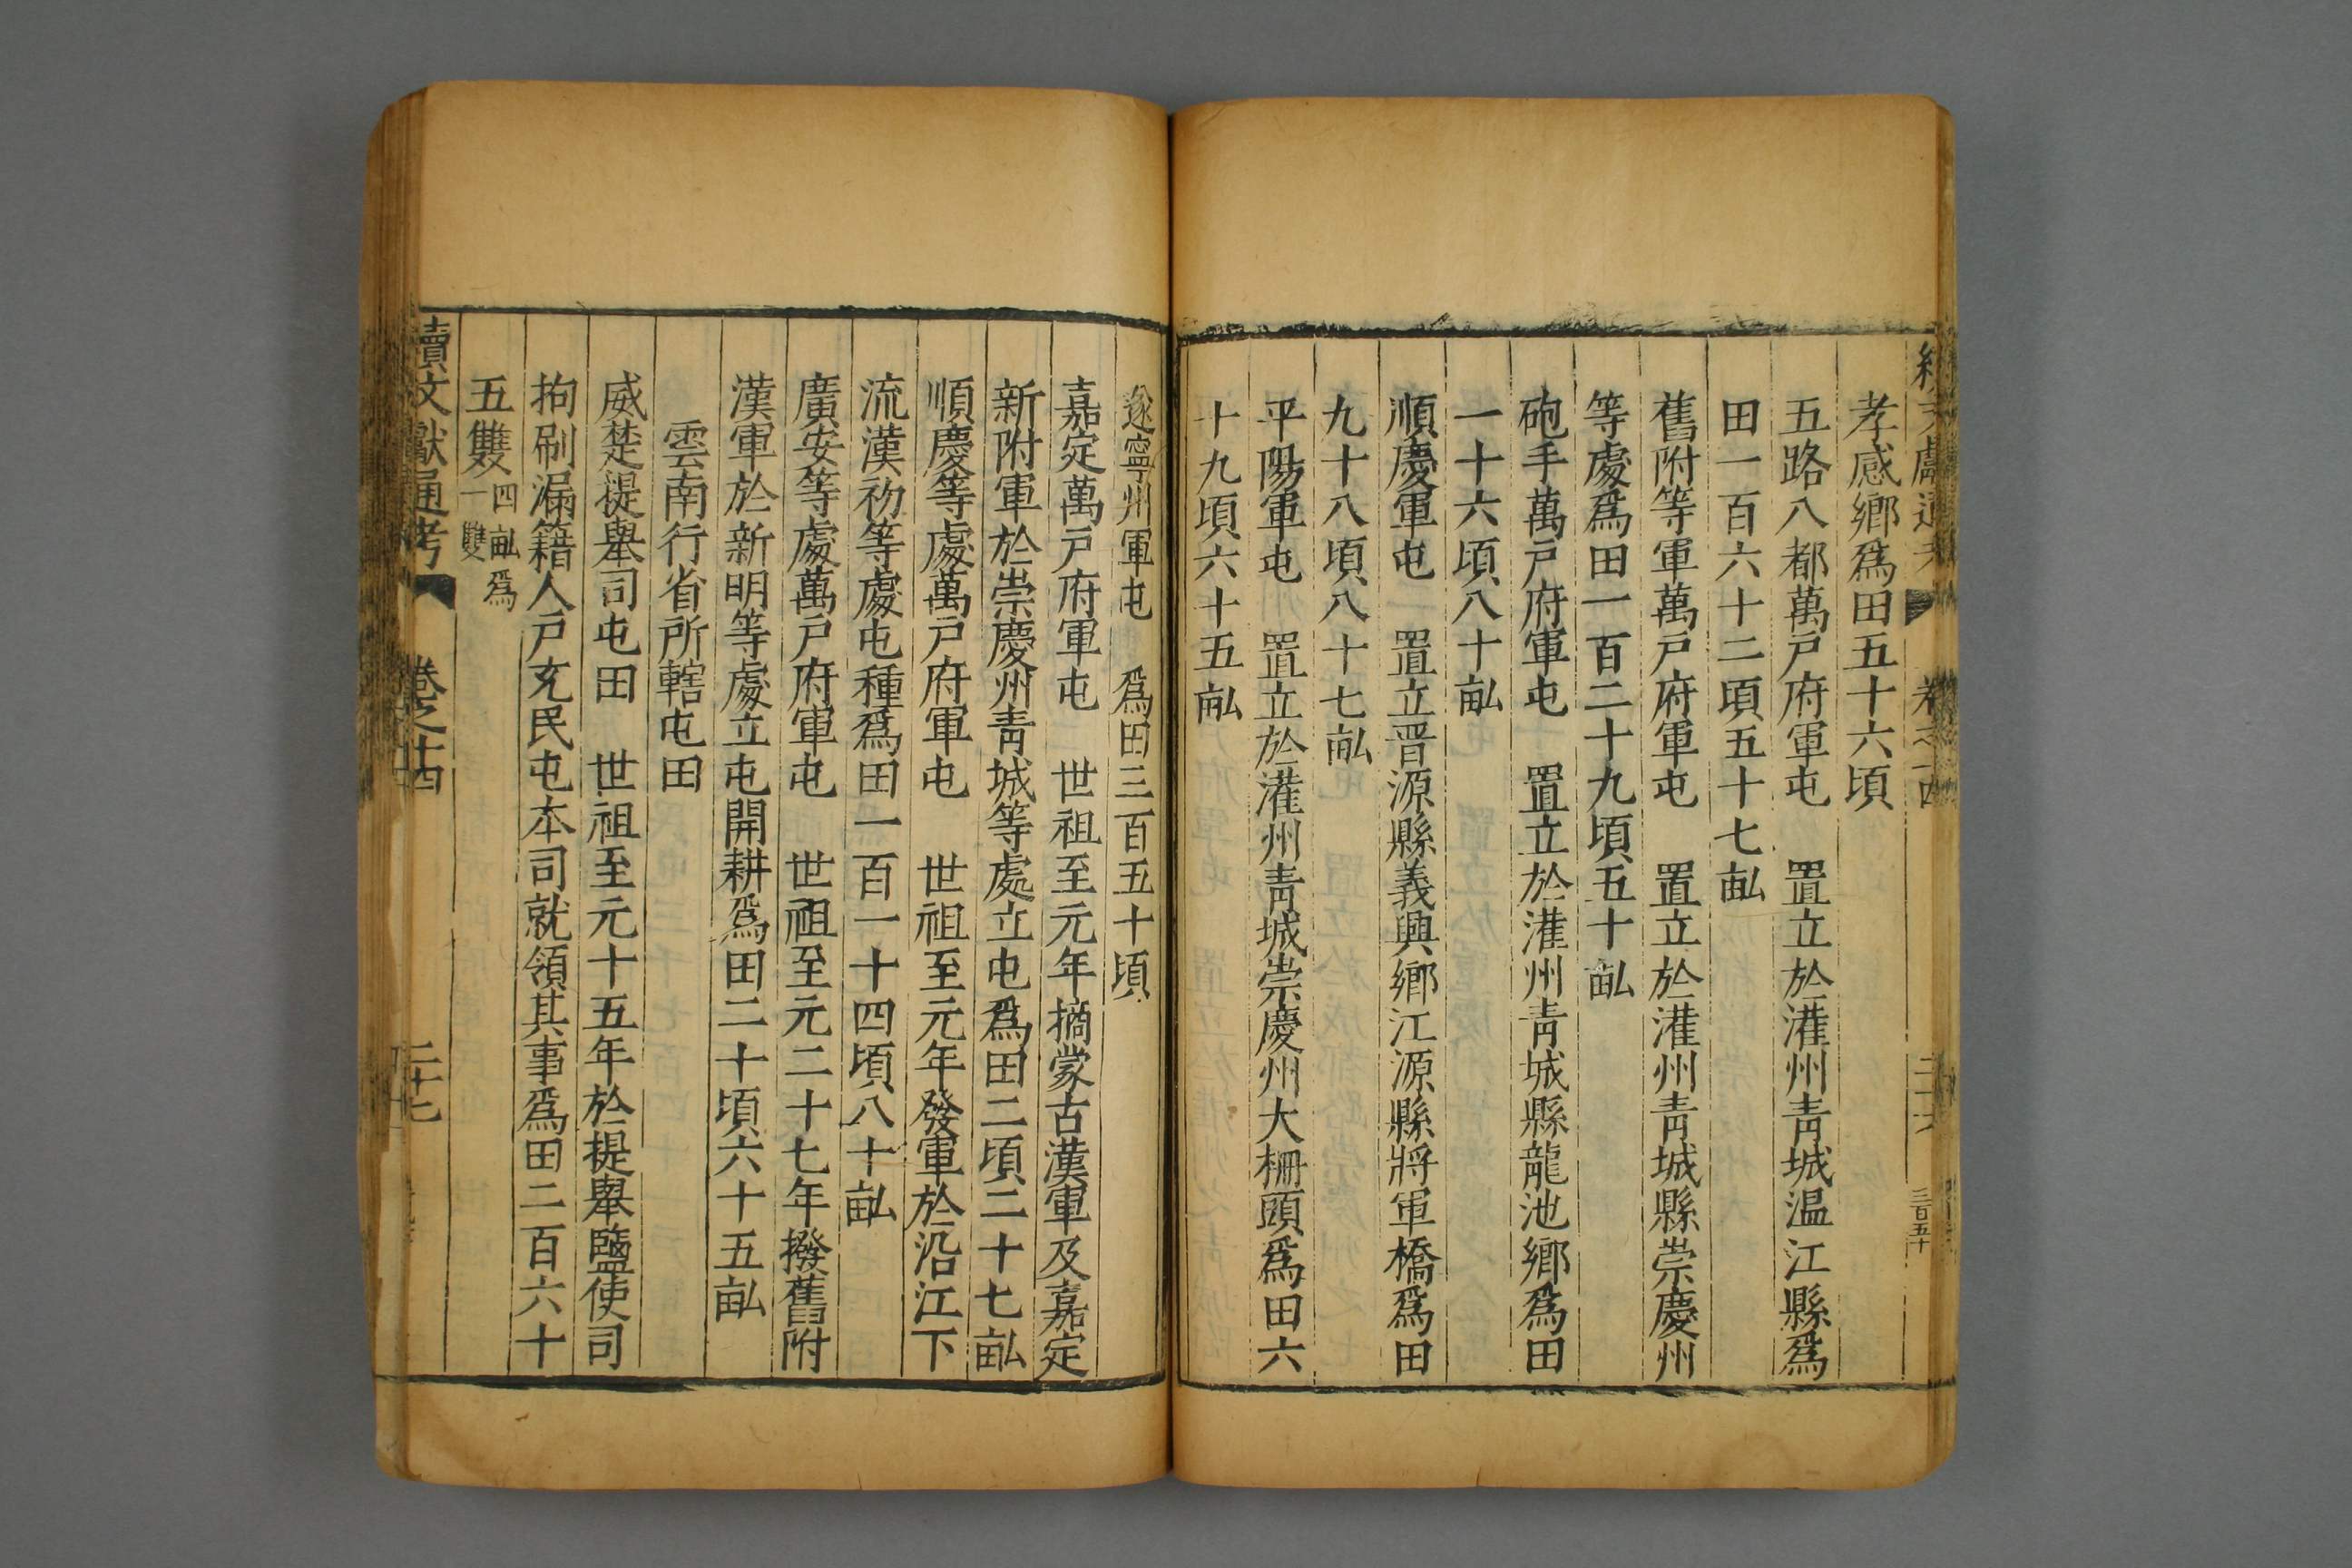 孝感鄉爲田五十六頃
五路八都萬戶府軍屯　置立於灌州靑城温江縣爲
田一百六十二頃五十七畝
舊附等軍萬戶府軍屯　置立於灌州靑城縣崇慶州
等處爲田一百二十九頃五十畝
砲手萬戶府軍屯　置立於灌州靑城縣龍池鄉爲田
一十六頃八十畝
順慶軍屯　置立晋源縣義興鄉江源縣將軍橋爲田
九十八頃八十七畝
平陽軍屯　置立於灌州靑城崇慶州大柵頭爲田六
十九頃六十五畝
遂寧州軍屯　爲田三百五十頃
嘉定萬戶府軍屯　世祖至元年摘蒙古漢軍及嘉定
新附軍於崇慶州靑城等處立屯爲田二頃二十七畝
順慶等處萬戶府軍屯　世祖至元年發軍於沿江下
流漢初等處屯種爲田一百一十四頃八十畝
廣安等處萬戶府軍屯　世祖至元二十七年撥舊附
漢軍於新明等處立屯開耕爲田二十頃六十五畝
雲南行省所轄屯田
威楚提舉司屯田　世祖至元十五年於提舉鹽使司
拘刷漏籍人戶充民屯本司就領其事爲田二百六十
五雙四畝爲一雙
續文獻通考　卷之十四　二十七